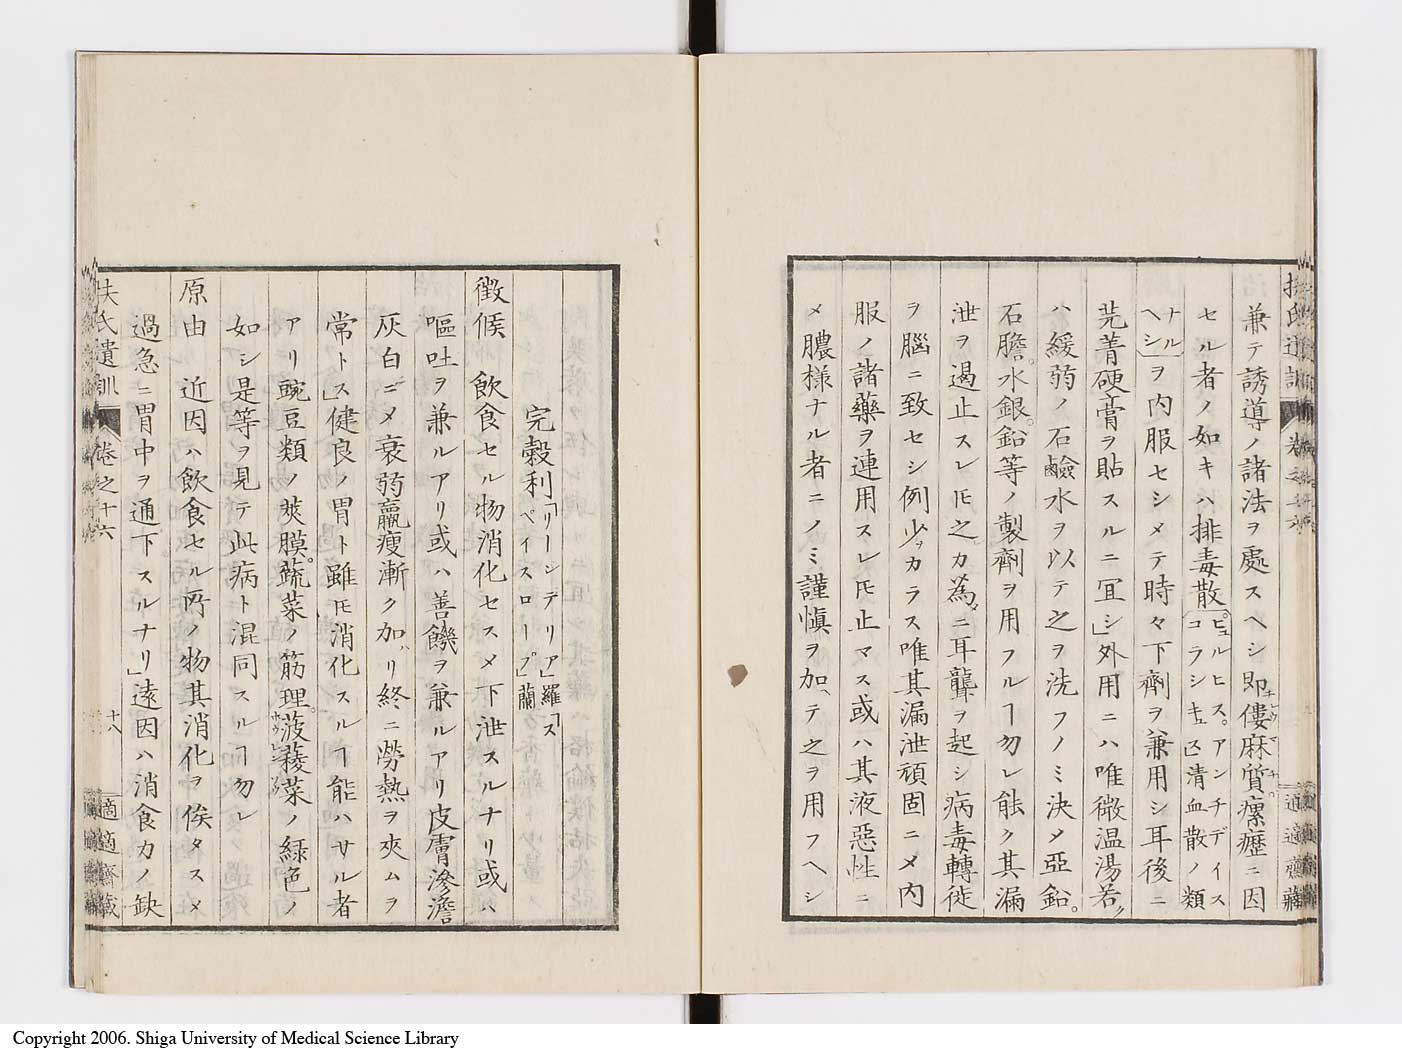 兼テ誘導ノ諸法ヲ處スヘシ即僂麻質瘰癧ニ因
セル者ノ如キハ排毒散ピュルヒス。アンチデイスコラシキュス清血散ノ類
ナルヘシヲ内服セシメテ時々下劑ヲ兼用シ耳後ニ
芫菁硬膏ヲ貼スルニ宜シ」外用ニハ唯微温湯若ク
ハ緩弱ノ石鹸水ヲ以テ之ヲ洗フノミ決メ亞鉛。
石膽。水銀。鉛等ノ製劑ヲ用フルヿ勿レ能ク其漏
泄ヲ遏止スレ𪜈之カ為ニ耳聾ヲ起シ病毒轉徙
ヲ腦ニ致セシ例少カラス唯其漏泄頑固ニメ内
服ノ諸藥ヲ連用スレ𪜈止マス或ハ其液惡性ニ
メ膿様ナル者ニノミ謹愼ヲ加ヘテ之ヲ用フヘシ
扶氏遺訓 卷之十六 十八 適適齋藏
完穀利「リーンテリア」羅「スペイスロープ」蘭
徴候 飲食セル物消化セスメ下泄スルナリ或ハ
嘔吐ヲ兼ルアリ或ハ善饑ヲ兼ルアリ皮膚滲澹
灰白ニメ衰弱羸瘦漸ク加ハリ終ニ勞熱ヲ夾ムヲ
常トス」健良ノ胃ト雖𪜈消化スルヿ能ハサル者
アリ豌豆類ノ莢膜。蔬菜ノ筋理。菠薐菜ノ緑色ノ
如シ是等ヲ見テ此病ト混同スルヿ勿レ
原由 近因ハ飲食セル所ノ物其消化ヲ俟タスメ
過急ニ胃中ヲ通下スルナリ」遠因ハ消食力ノ缺
Copyright 2006. Shiga University of Medical Science Library